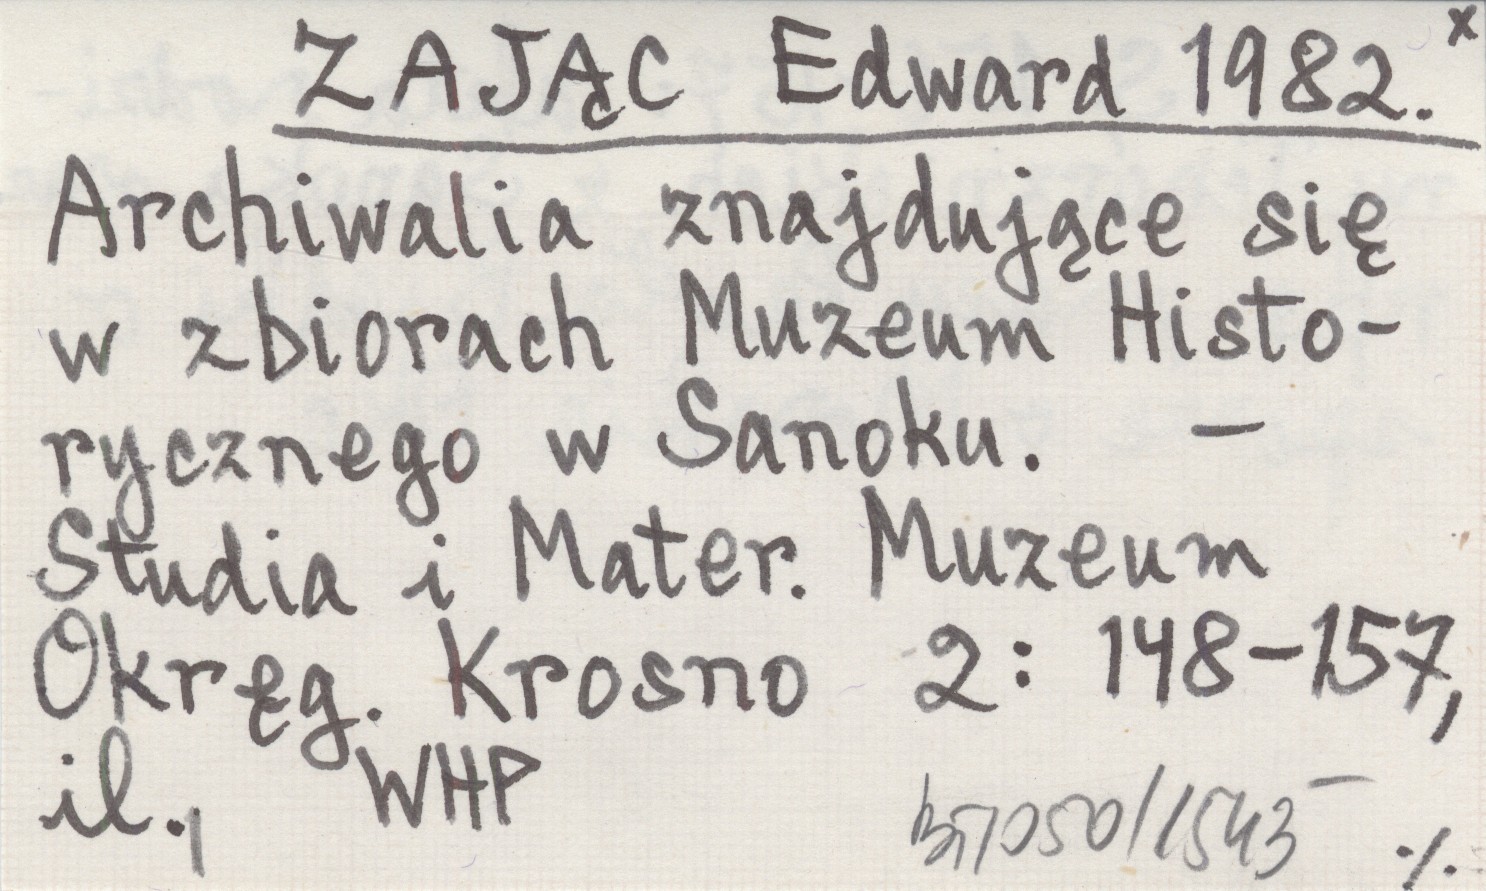 ZAJĄC Edward 1982. x
Archiwalia znajdujące się
w zbiorach Muzeum Histo-
rycznego w Sanoku. –
Studia i Mater. Muzeum
Okręg. Krosno 2: 148–157,
il., WHP
/1543 ./.